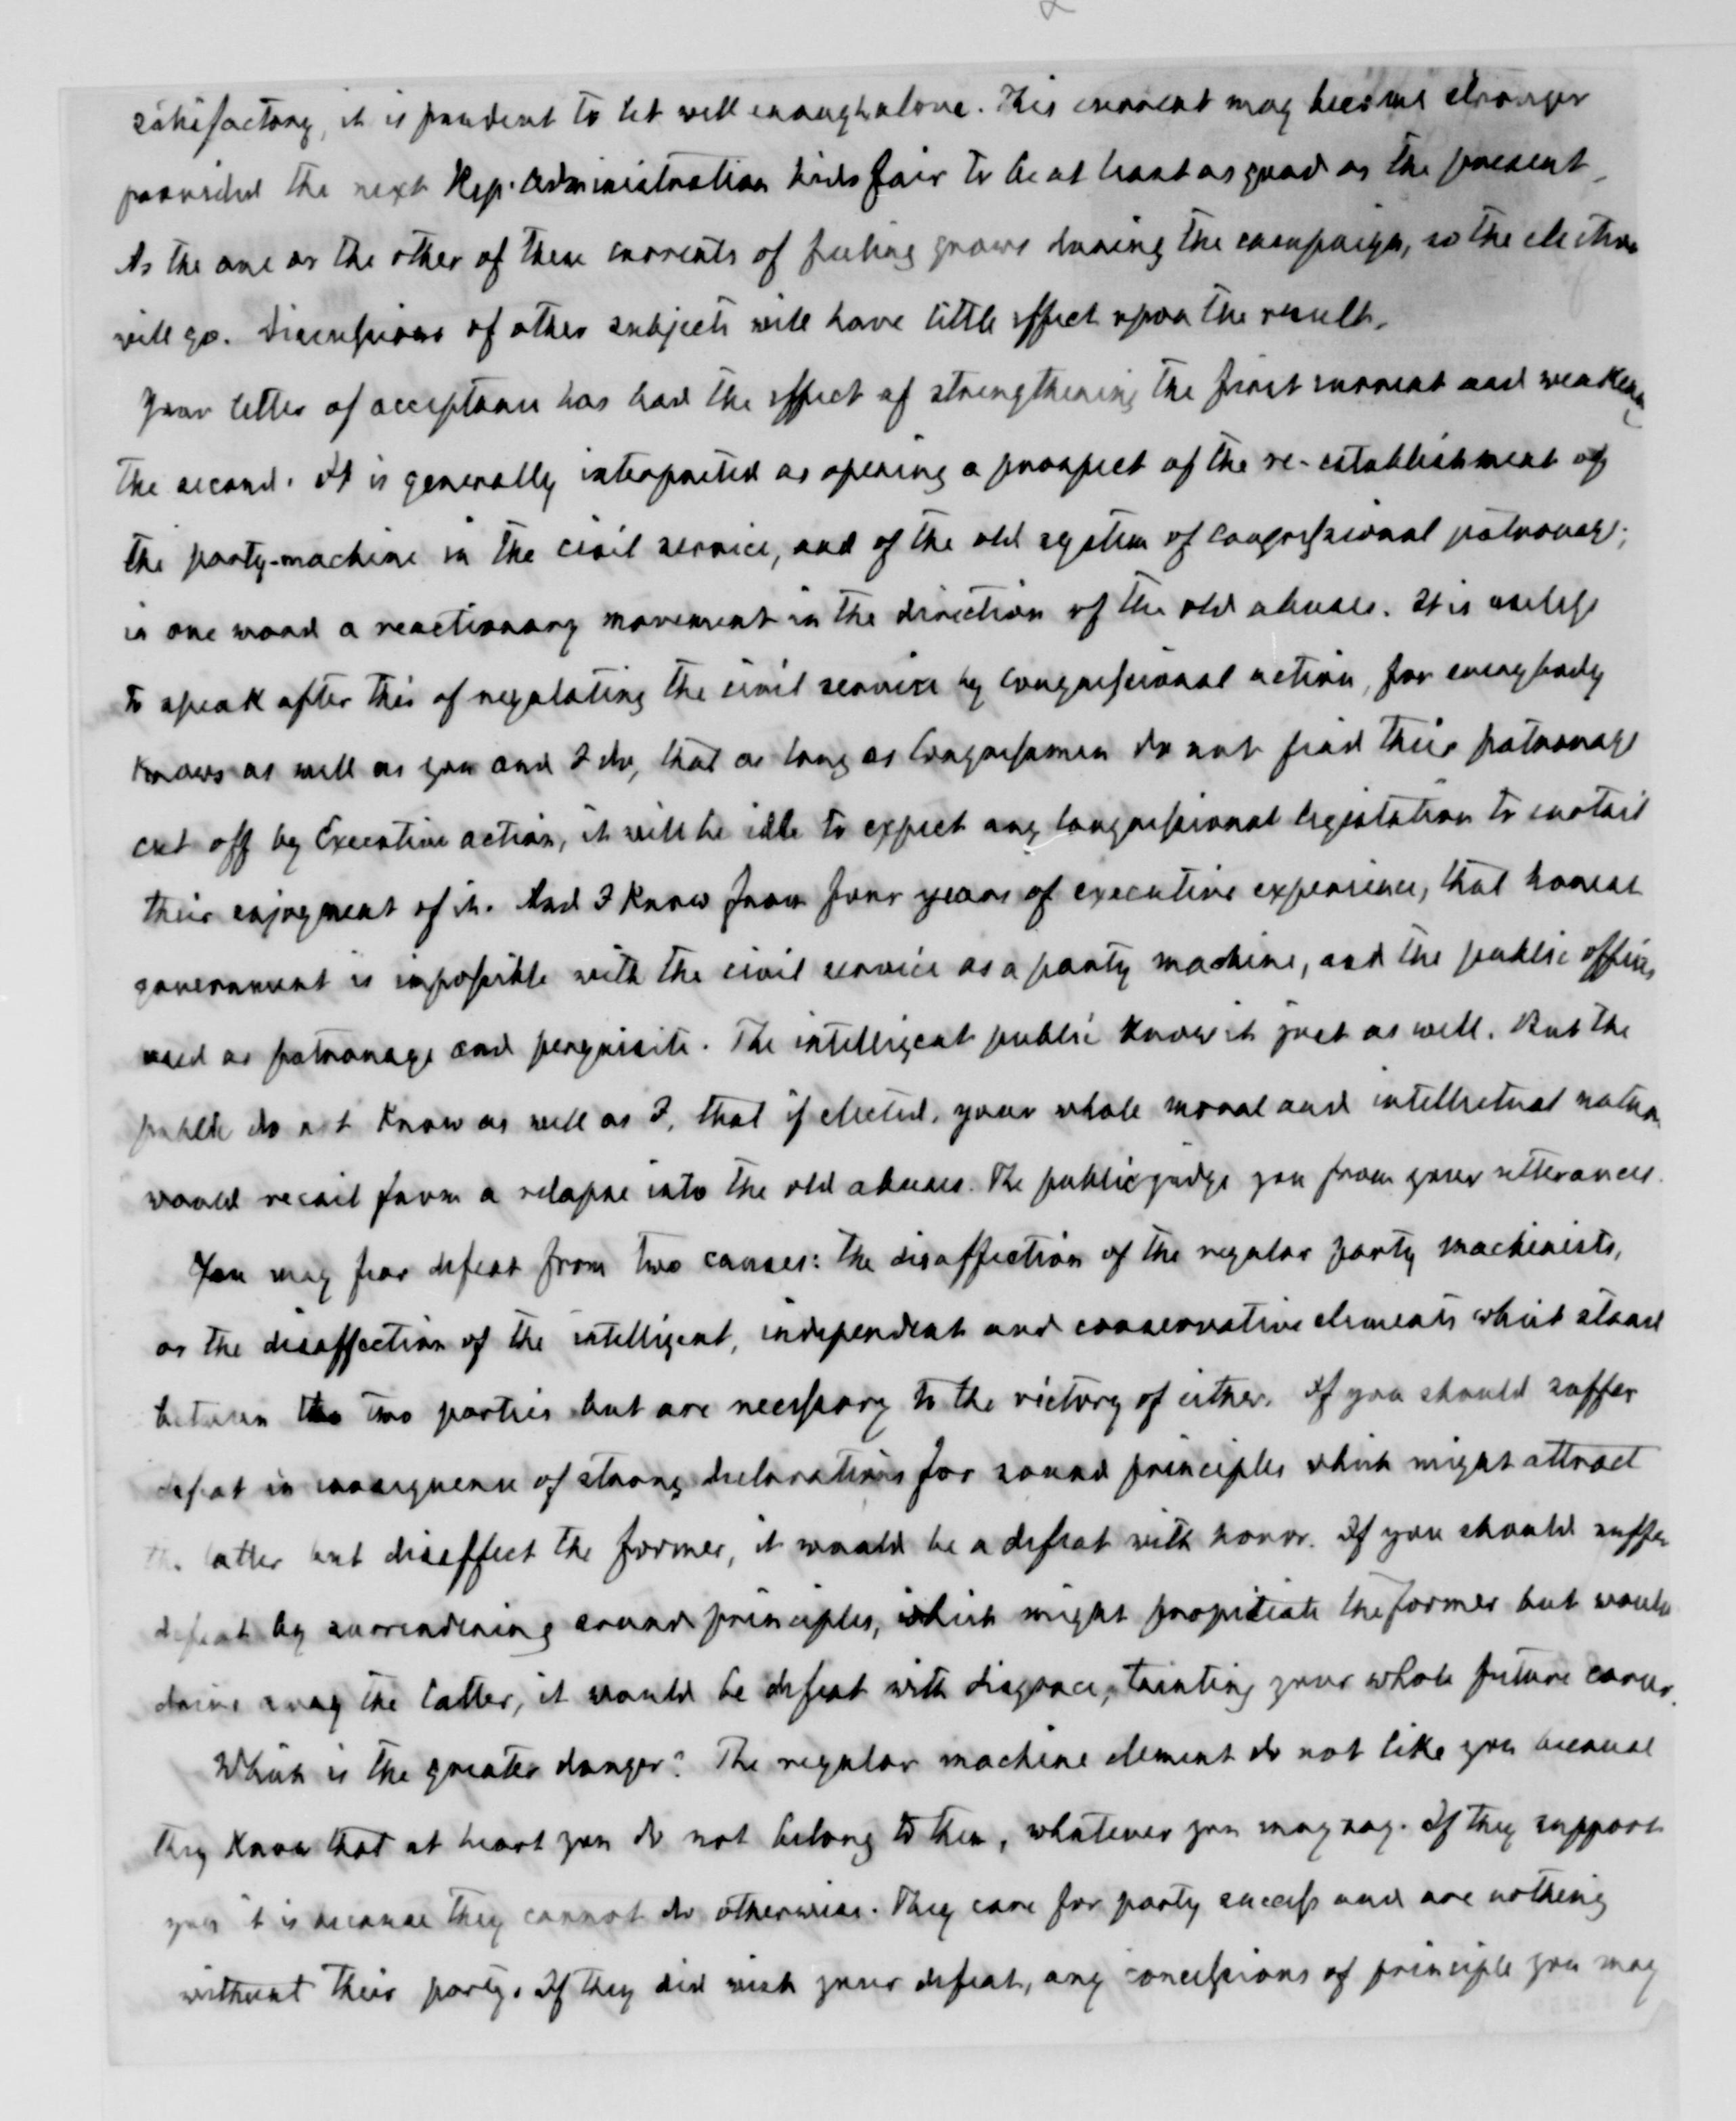 satisfactory, it is prudent to let well enough alone. This current may become stronger
provided the next Rep. Administration bids fair to be at least as good as the present.
As the one or the other of these currents of feeling grows during the campaign, so the election
will go. Discussions of other subjects will have little effect upon the result.
Your letter of acceptance has had the effect of strengthening the first current and weakening
the second. It is generally interpreted as opening a prospect of the re-establishment of
the party-machine in the civil service, and of the old system of Congressional patronage;
in one word a reactionary movement in the direction of the old abuses. It is useless
to speak after this of regulating the civil service by Congressional action, for everybody
knows as well as you and I do, that as long as Congressmen do not find their patronage
cut off by Executive action, it will be idle to expect any Congressional legislation to curtail
their enjoyment of it. And I know from four years of executive experience, that honest
government is impossible with the civil service as a party machine, and the public offices
used as patronage and perquisite. The intelligent public know it just as well. But the
public do not know as well as I, that if elected, your whole moral and intellectual nature
would recoil from a relapse into the old abuses. The public judge you from your utterances.
You may fear defeat from two causes: the disaffection of the regular party machinists,
or the disaffection of the intelligent, independent and conservative elements which stand
between the two parties but are necessary to the victory of either. If you should suffer
defeat in consequence of strong declarations for sound principles which might attract
the latter but disaffect the former, it would be a defeat with honor. If you should suffer
defeat by surrendering sound principles, which might propitiate the former but would
drive away the latter, it would be defeat with disgrace, tainting your whole future career.
Which is the greater danger? The regular machine element do not like you because
they know that at heart you do not belong to them, whatever you may say. If they support
you it is because they cannot do otherwise. They care for party success and are nothing
without their party. If they did wish your defeat, any concessions of principle you may